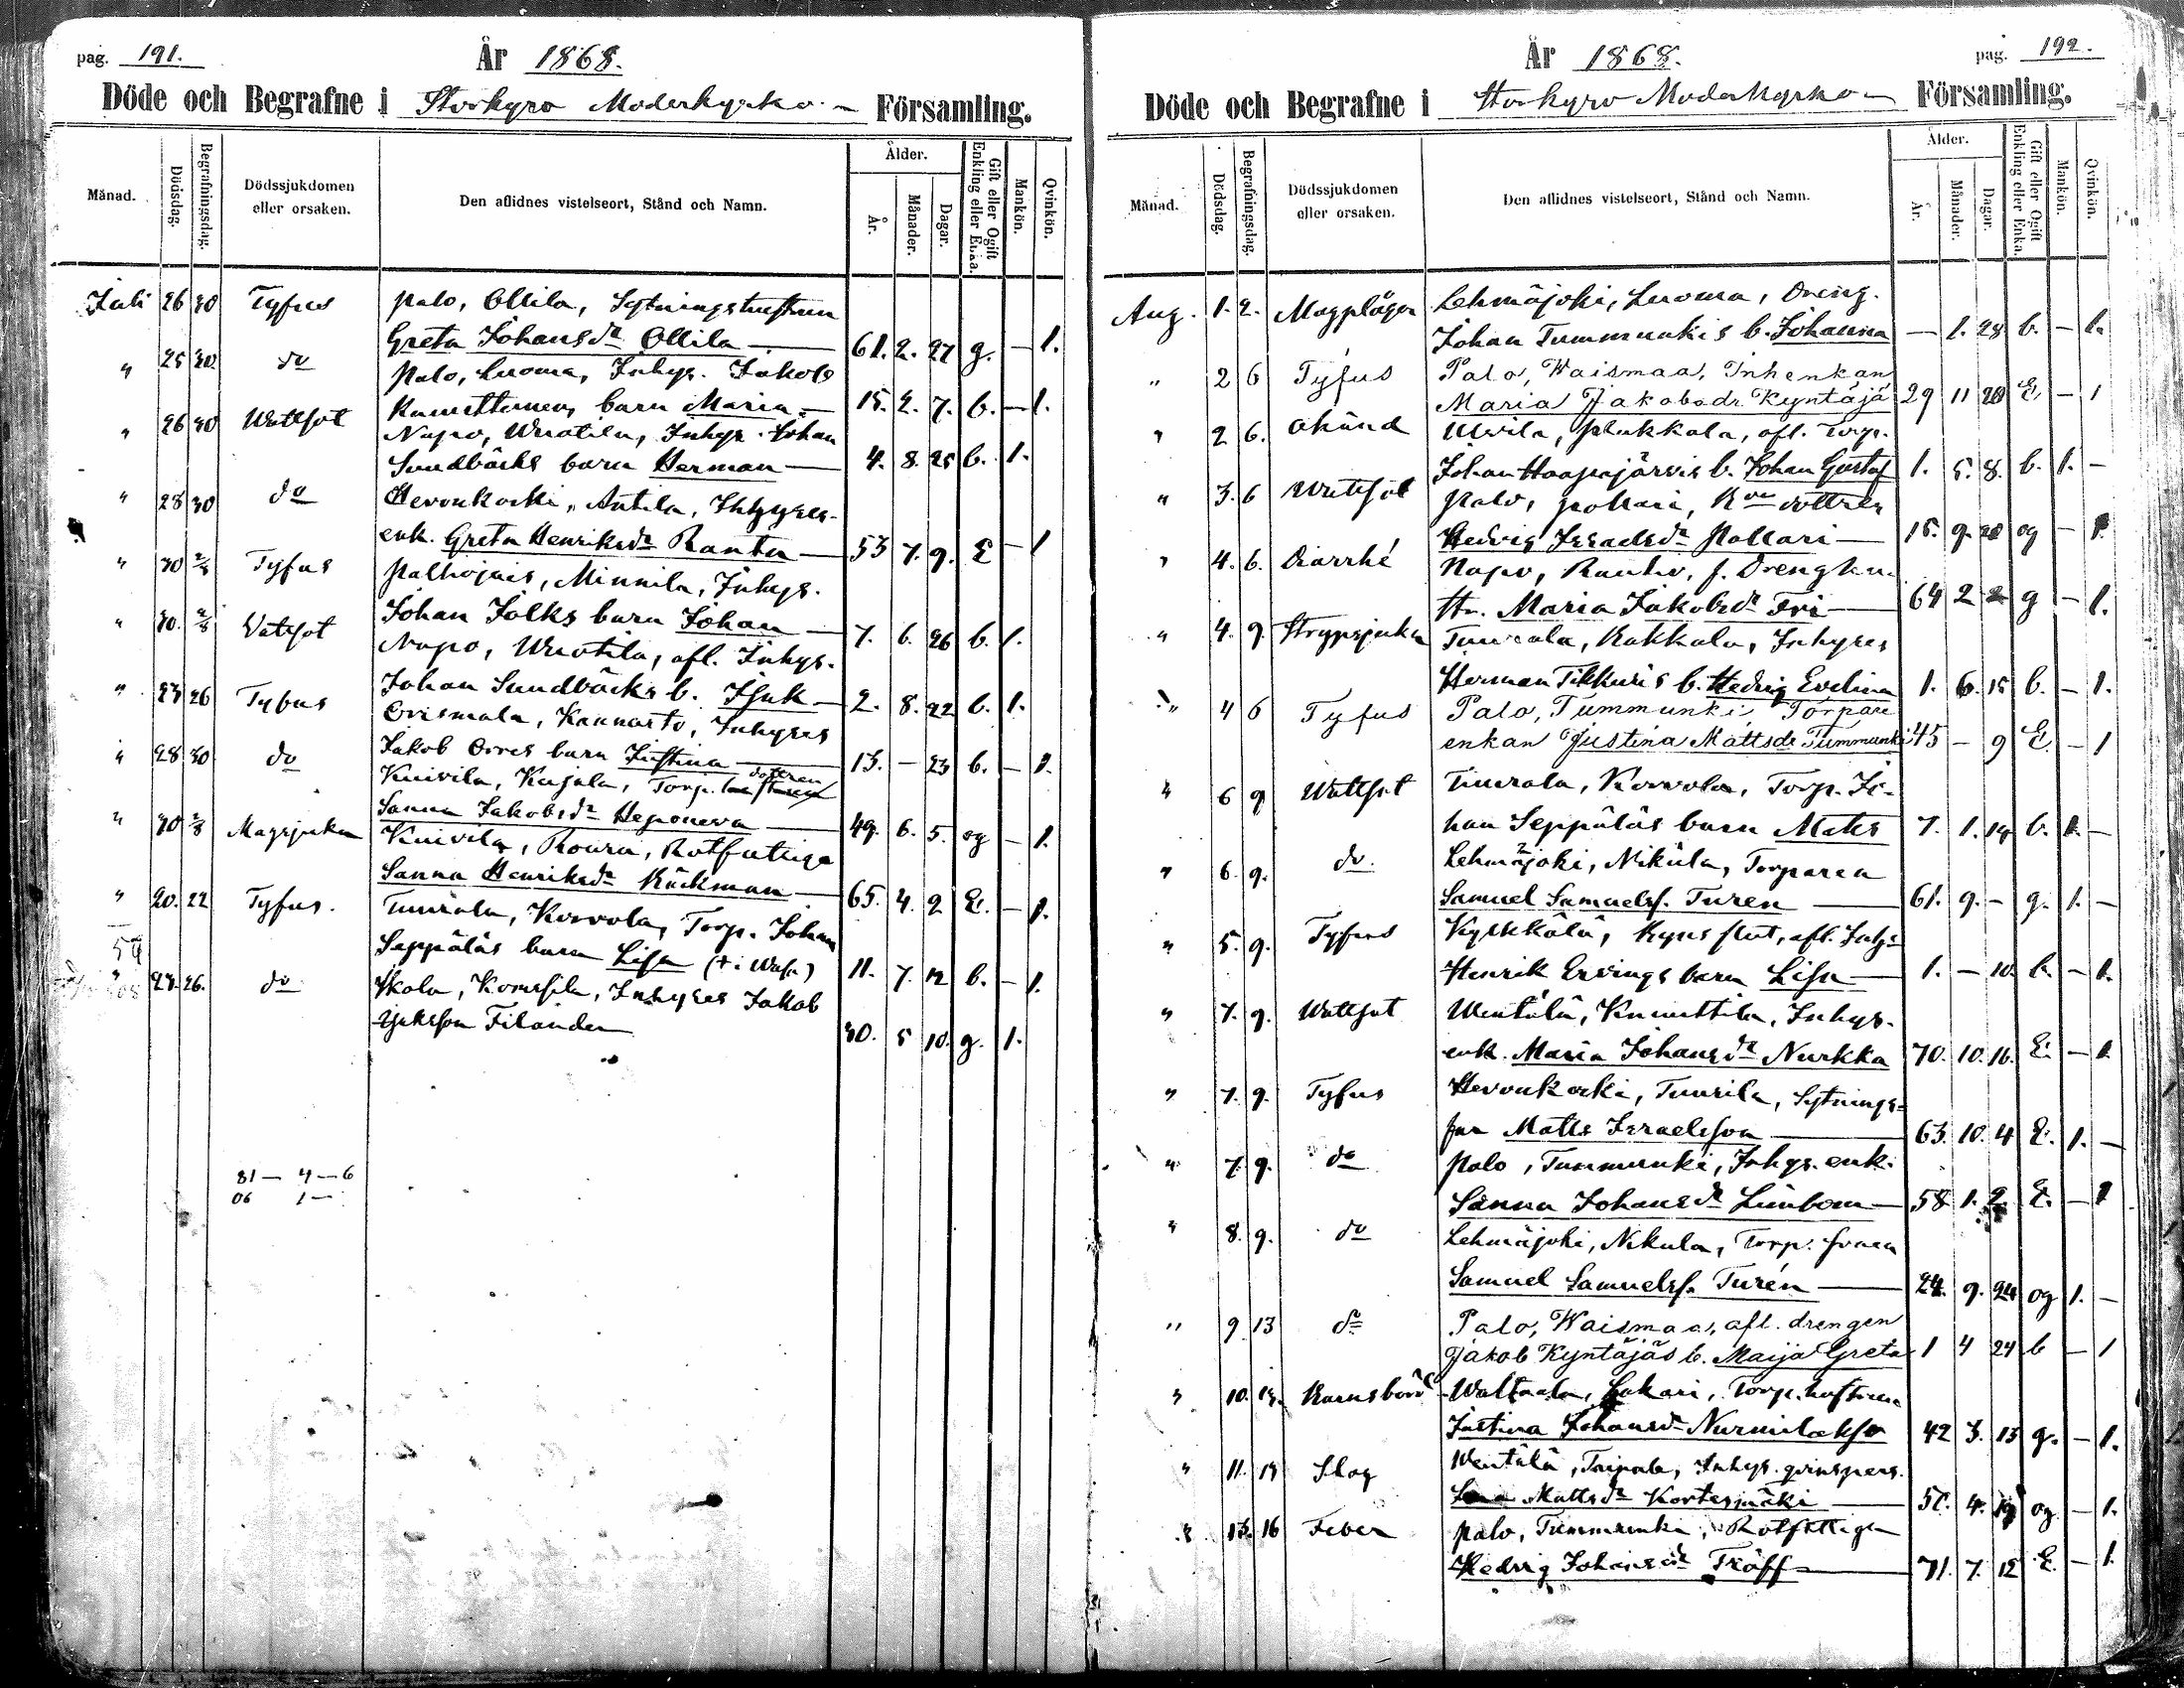 pag. 191.
År 1868.
Döde och Begrafne i Storkyro Moderkyrko Församling.
Månad. Dödsdag. Begrafningsdag. Dödssjukdomen eller orsaken. Den aflidnes vistelseort, Stånd och Namn. Ålder. År. Månader. Dagar. Gift eller Ogift Enkling eller Enka. Mankön. Qvinkön.
Juli 26 30 Tyfus Palo, Ollila, Sytningshustrun
Greta Johansdr Ollila — 61. 2. 27 g. — 1.
" 25 30. do Palo, Luoma, Inhys. Jakob
barn Maria — 15. 2. 7. b. — 1.
" 26 30 Wattsot Napo, Wuotila, Inhys. Johan
Sundbäcks barn Herman — 4. 8. 25 b. 1.
" 28 30 do Hevonkoski, Antila, Inhyses-
enk. Greta Henriksdr Ranta — 53 7. 9. E — 1
" 30 2/8 Tyfus Palhojais, Minnila, Inhys.
Johan Jolks barn Johan — 7. 6. 26 b. 1.
" 30. 2/8 Vattsot Napo, Wuotila, afl. Inhys.
Johan Sundbäcks b. Isak — 2. 8. 22 b. 1.
" 23 26 Tyfus Orismala, Kaunasto, Inhyses
Jakob Orres barn Justina — 13. — 23 b. — 1.
" 28 30 do Knivila, Kujala, Torp. dottren
Sanna Jakobsdr Heponeva — 49. 6. 5. og — 1.
" 30 2/8 Magsjukan Knivila, Roura, Rotfattiga
Sanna Henriksdr Räckman — 65. 4. 2 E. — 1.
" 20. 22 Tyfus. Tuurala, Korvola, Torp. Johan
Seppäläs barn Lisa († i Wasa) 11. 7. 12 b. — 1.
54
" 23. 26. do Ikola, Komsila, Inhyses Jakob
Filander 30. 5 10. g. 1.
81 — 4 — 6
06 1 —
pag. 192.
År 1868.
Döde och Begrafne i Storkyro Moderkyrko Församling.
Månad. Dödsdag. Begrafningsdag. Dödssjukdomen eller orsaken. Den aflidnes vistelseort, Stånd och Namn. Ålder. År. Månader. Dagar. Gift eller Ogift Enkling eller Enka. Mankön. Qvinkön.
Aug. 1. 2. Magplågor Lehmäjoki, Luoma, Dreng.
Johan Tummunkis b. Johanna — 1. 28 b. — 1.
" 2 6 Tyfus Palo, Waismaa, Inhenkan
Maria Jakobsdr. Kyntäjä 29 11 20 E. — 1
" 2 6. Okänd Ulvila, Plukkala, afl. Torp.
Johan Haapajärvis b. Johan Gustaf 1. 5. 8. b. 1. —
" 3. 6 Wattsot Palo, Pollari, dottren
Hedvig Israelsdr Pollari — 15. 9. 20 og — 1.
" 4. 6. Diarrhé Napo, Rauhio, f. Drenghu-
str. Maria Jakobsdr Fri — 64 2 2 g — 1.
" 4. 9. Strypsjuka Tuurala, Kakkala, Inhyses
Herman Tikkuris b. Hedvig Evelina 1. 6. 15 b. — 1.
" 4 6 Tyfus Palo, Tummunki, Torpare
enkan Justina Mattsdr Tummunki 45 — 9 E. — 1
" 6 9 Wattsot Tuurala, Korvola, Torp. Jo-
han Seppäläs barn Mats 7. 1. 19 b. 1. —
" 6. 9. do. Lehmäjoki, Nikula, Torparen
Samuel Samuelss. Turen — 61. 9. — g. 1. —
" 5. 9. Tyfus Kylkkälä, afl. Inhys
Henrik Ervings barn Lisa — 1. — 10. b. — 1.
" 7. 9. Wattsot Wentälä, Knuuttila, Inhys.
enk. Maria Johansdr Nurkka 70. 10. 16. E. — 1.
" 7. 9. Tyfus Hevonkoski, Tuurila, Sytnings-
far Matts Israelsson — 63. 10. 4 E. 1. —
" 7. 9. do Palo, Tummunki, Inhys. enk.
Sanna Johansdr Limbom — 58. 1. 2. E. — 1
" 8. 9. do Lehmäjoki, Nikula, Torp. sonen
Samuel Samuelss. Turén — 24. 9. 24 og 1. —
" 9. 13 do Palo, Waismaa, afl. drengen
Jakob Kyntäjäs b. Maija Greta 1 4 24 b — 1
" 10. 14. Barnsbörd Waltaala, Lukari, Torp. hustrun
Justina Johansdr Nurmilakso 42 3. 13 g. — 1.
" 11. 14 Slag Wentälä, Taipale, Inhys. qvinspers.
Mattsdr Kortesmäki — 4. og — 1.
" 13. 16 Feber Palo, Tummunki, Rotfattiga
Hedvig Johansdr Träff — 71. 7. 12 E. — 1.